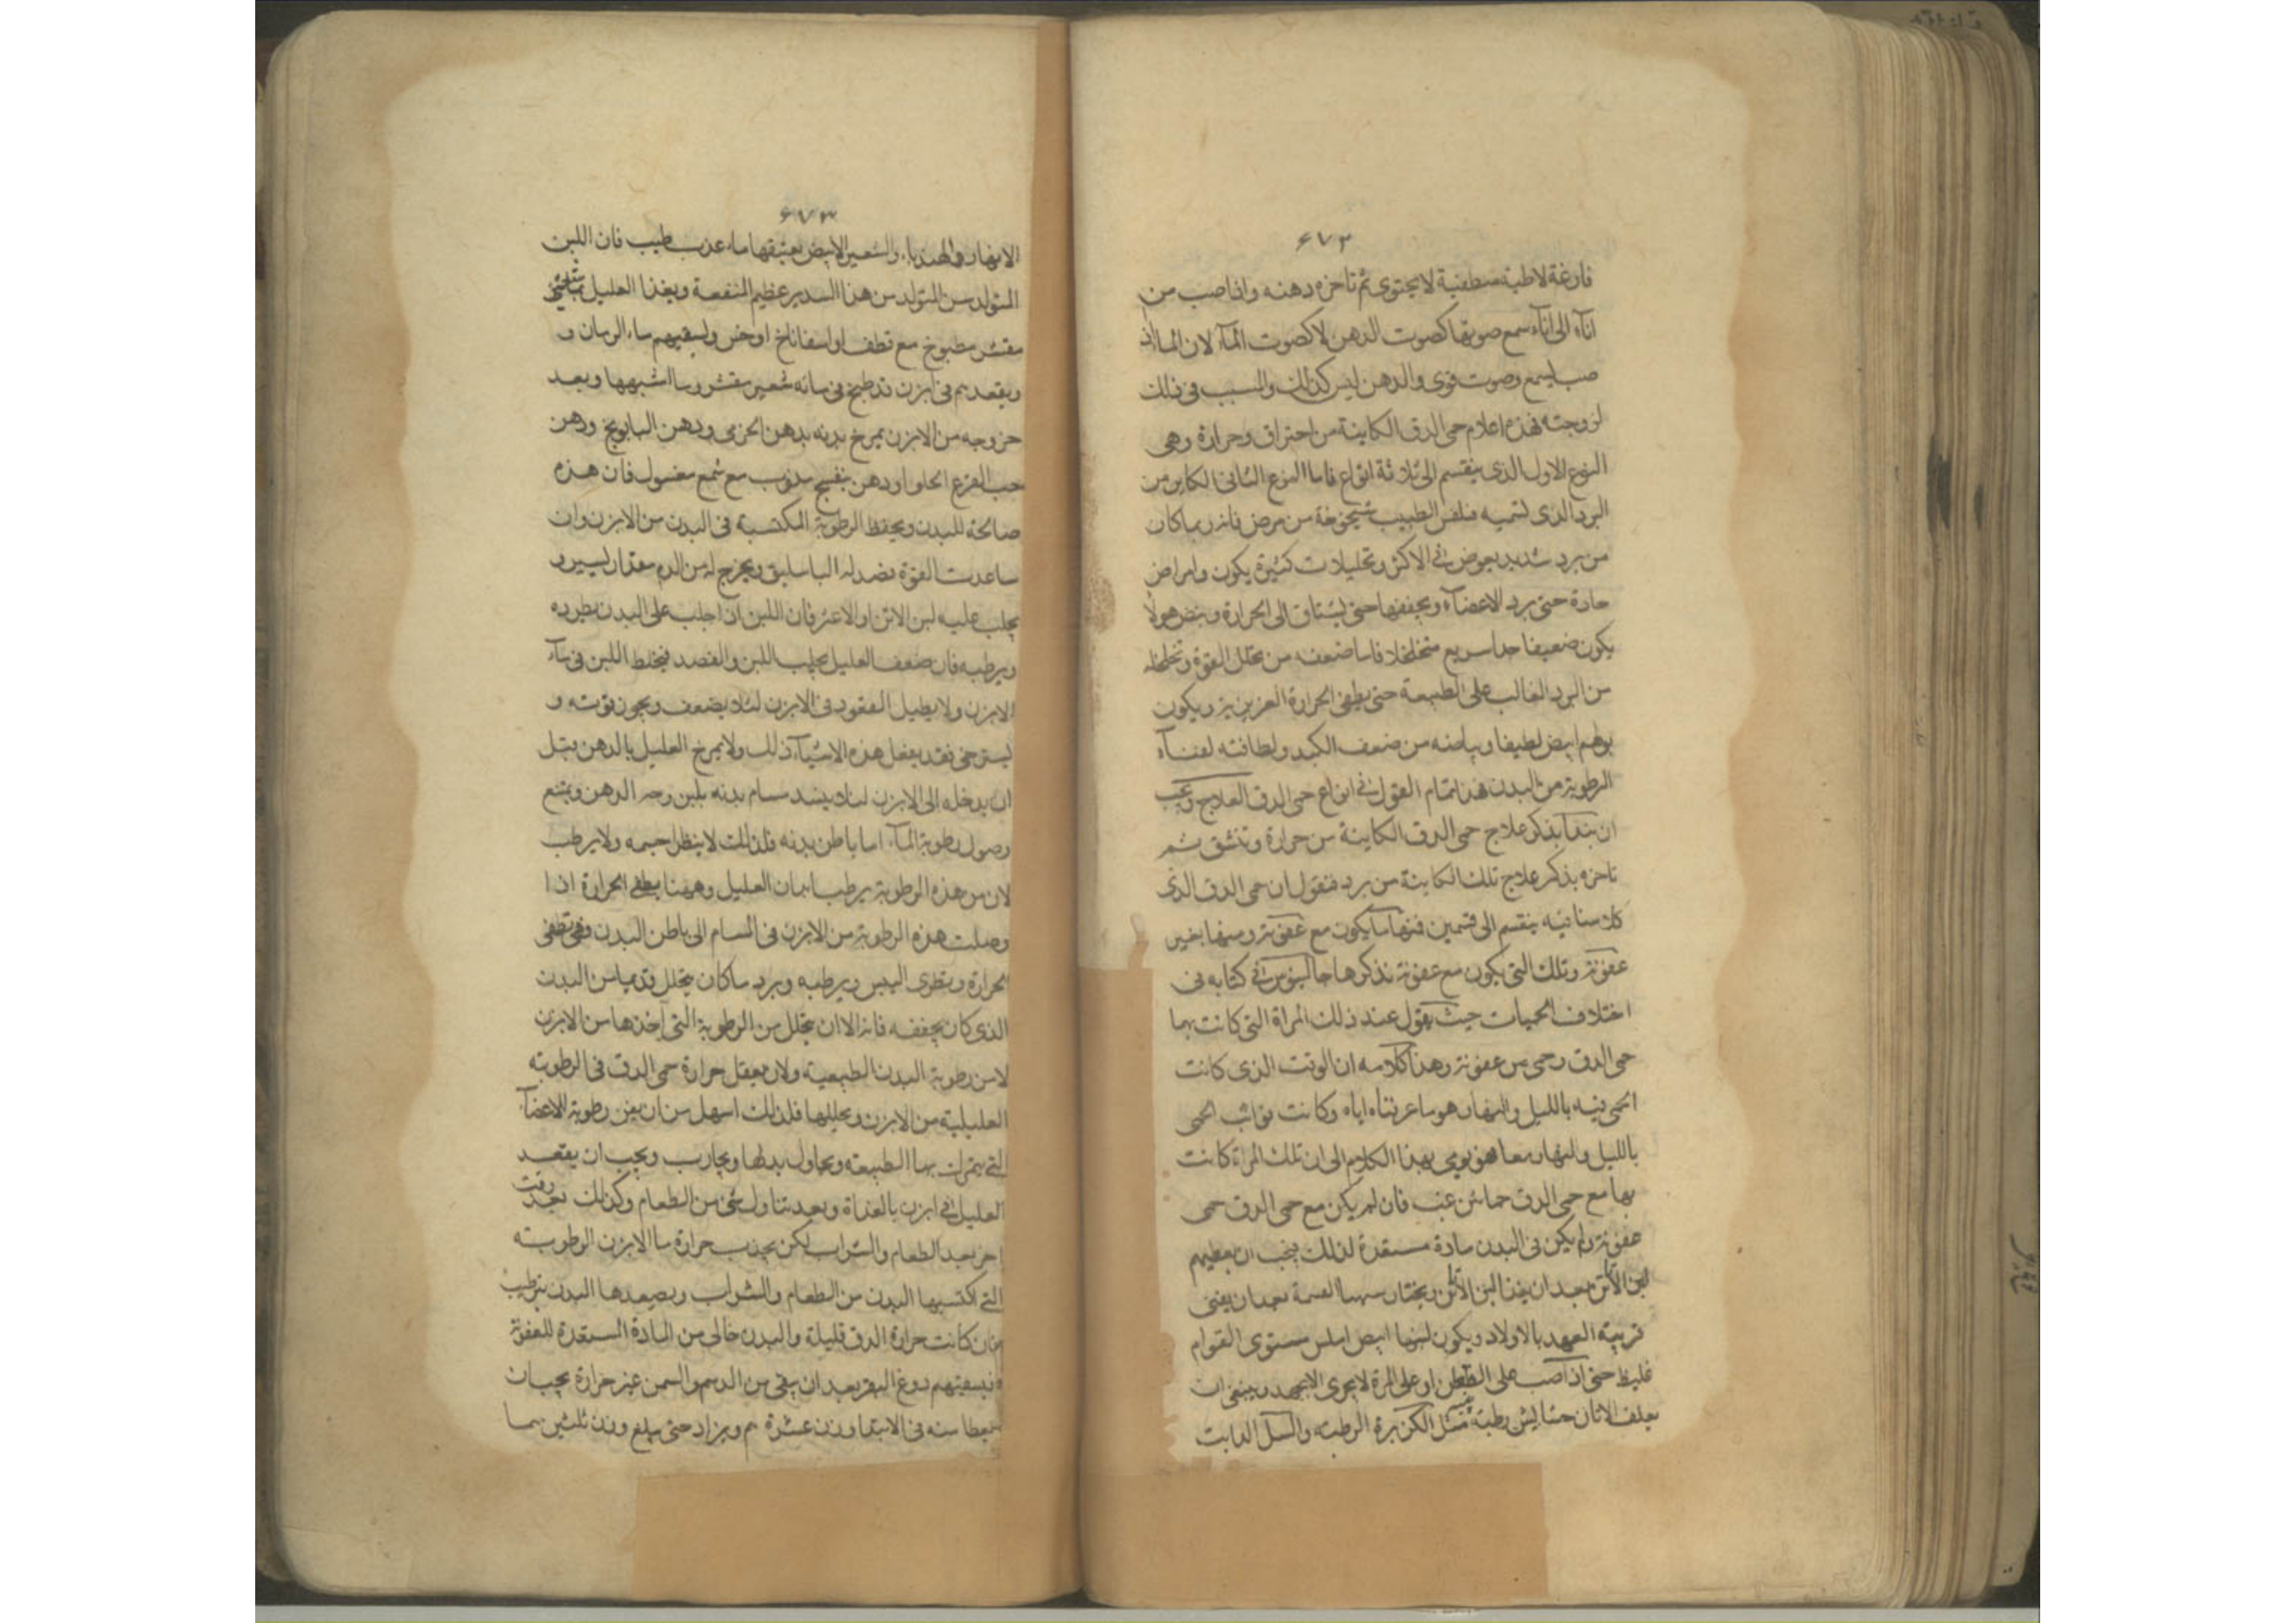 ۶۷۲
فارغة لاطية منطفية لا يحتوى ثم تاخره دهنه واذا صب من
اناء الى اناء سمع صوتها كصوت الدهن لا كصوت الماء لان الماء اذ
صب يسمع وصوت قوى والدهن ليس كذلك والسبب فى ذلك
لزوجته فهذه اعلام حمى الدق الكاينة من احتراق وحرارة وهى
النوع الاول الذى ينقسم الى ثلاثة انواع فاما النوع الثانى الكاين من
البرد الذى لتميه فلفس الطبيب شيخوخة من مرض فانه ربما كان
من برد شديد يعرض فى الاكثر وتحليلات كثيرة يكون وامراض
حادة حتى برد الاعضاء ويجففها حتى يشتاق الى الحرارة ونبض هولا
يكون ضعيفا جدا سريع متخلخلا فاما ضعفه من تحلل القوة وتخلخله
من البرد الغالب على الطبيعة حتى يطفى الحرارة الغريزية ويكون
بولهم ابيض لطيفا وبياضه من ضعف الكبد ولطافته لفناء
الرطوبة من البدن هذا تمام القول فى انواع حمى الدق العلاج ويجب
ان نبدأ بذكر علاج حمى الدق الكاينة من حرارة وتنشق ثم
ناخره بذكر علاج تلك الكاينة من برد فنقول ان حمى الدق الذى
كلامنا فيه ينقسم الى قسمين فمنها ما يكون مع عفونة ومنها بغير
عفونة وتلك التى يكون مع عفونة نذكرها جالينوس فى كتابه فى
اختلاف الحميات حيث يقول عند ذلك المراة التى كانت بها
حمى الدق وحمى من عفونة وهذا كلامه ان الوقت الذى كانت
الحمى فيه بالليل والنهار هو ما عرفناه اياه وكانت نوائب الحمى
بالليل والنهار معا فهو يومى بهذا الكلام الى ان تلك المراة كانت
بها مع حمى الدق حمائن غب فان لم يكن مع حمى الدق حمى
عفونة ولم يكن فى البدن مادة مستعدة لذلك يجب ان يعطيهم
لبن الاتن بعد ان يغذا البن الاتن يختار سهسا لعسمة بعد ان يعنى
قريبة العهد بالاولاد ويكون لبنها ابيض املس مستوى القوام
غليظ حتى اذا صب على القطن او على المرة لا يجرى الا بجهد وينبغى ان
يعلف الاتان حشايش رطبة مثل الكزبرة الرطبة والسل النابت
۶۷۳
الانهار والهندباء والشعير الابيض يعتقها ماء عذب طيب فان اللبن
المتولد من المتولد من هذا التدبير عظيم المنفعة ويغذا العليل
مقشر مطبوخ مع قطف او اسفاناخ او خس ولسقيهم ماء الرمان و
ويقعدهم فى ابزن قد طبخ فى مائه شعير مقشر وما اشبهها وبعد
خروجه من الابزن يمرخ بدنه بدهن الخزمى ودهن البابونج ودهن
حب القرع الحلو او دهن بنفسج مذوب مع شمع مغسول فان هذه
صالحة للبدن ويحفظ الرطوبة المكتسبة فى البدن من الابزن وان
ساعدت القوة فصد له الباسليق ويخرج له من الدم مقدار يسير و
يحلب عليه لبن الاتن او الاعنز فان اللبن اذا حلب على البدن يطرده
ويرطبه فان ضعف العليل يحلب اللبن والفصد فيخلط اللبن فى ماء
الابزن ولا يطيل القعود فى الابزن لئلا يضعف ويجوز قوته و
ليسترخى فقد يفعل هذه الاشياء ذلك ولا يمرخ العليل بالدهن قبل
ان يدخله الى الابزن لئلا ينسد مسام بدنه بلين وحر الدهن ويمنع
وصول رطوبة الماء اما باطن بدنه فلذلك لا ينظل جسمه ولا يرطب
لان من هذه الرطوبة يرطب ابدان العليل وههنا يطفى الحرارة اذا
وصلت هذه الرطوبة من الابزن فى المسام الى باطن البدن فهى تطفى
الحرارة وينطوى اليبس ويرطبه ويرد ما كان يحلل قديما من البدن
الذى كان يجففه فانه الا ان يحلل من الرطوبة التى اخذها من الابزن
لا من رطوبة البدن الطبيعية ولان يعقل حرارة حمى الدق فى الرطوبة
العليلية من الابزن وتحليلها فلذلك اسهل من ان يغير رطوبة الاعضاء
التى يتمرن بها الطبيعة ويحاول بدلها ويجارب ويجب ان يقعد
العليل فى ابزن بالغداة وبعد تناول شى من الطعام وكذلك بعد وقت
اخر بعد الطعام والشراب لكن يجذب حرارة ما الابزن الرطوبة
التى اكتسبها البدن من الطعام والشراب ويصعدها البدن بترطيب
فان كانت حرارة الدق قليلة والبدن خالى من المادة المستعدة للعفونة
فيسقيهم دوغ البقر بعد ان يقى من الدسم والسمن غير حرارة بجبان
يعطا منه فى الابتدا وزن عشرة م ويزاد حتى يبلغ وزن ثلثين بما